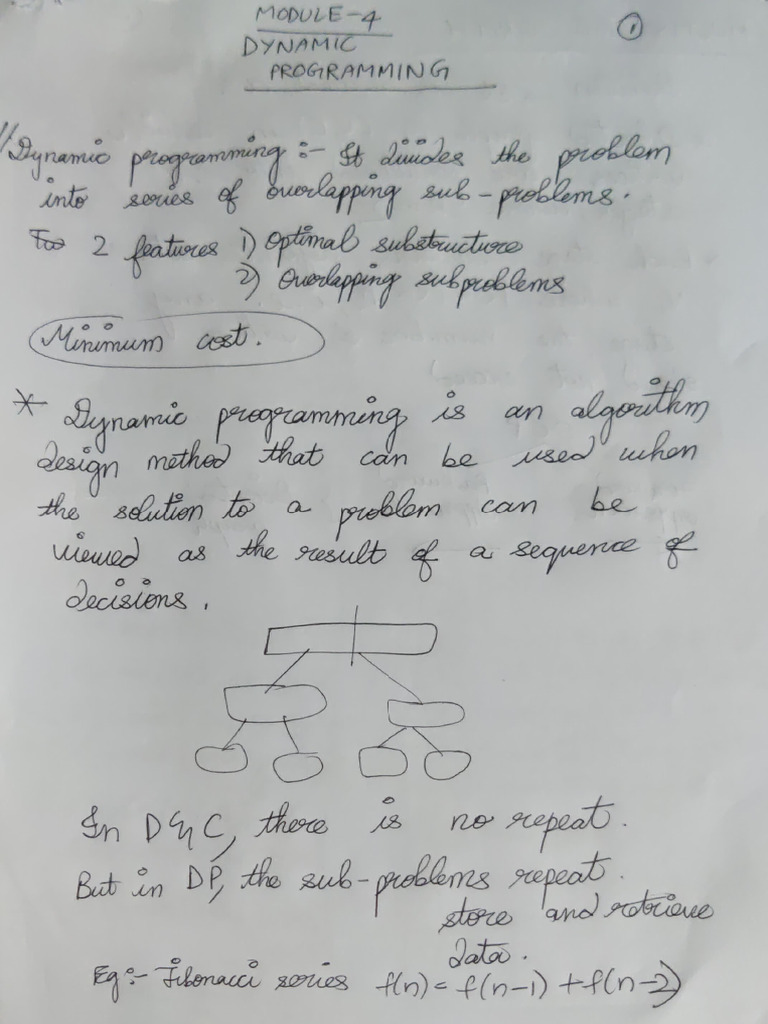 MODULE-4
①
DYNAMIC
PROGRAMMING
// Dynamic programming :- It divides the problem
into series of overlapping sub-problems.
2 features 1) Optimal substructure
2) Overlapping subproblems
Minimum cost.
* Dynamic programming is an algorithm
design method that can be used when
the solution to a problem can be
viewed as the result of a sequence of
decisions.
In D & C, there is no repeat.
But in DP, the sub-problems repeat.
store and retrieve
data.
Eg:- Fibonacci series f(n) = f(n-1) + f(n-2)